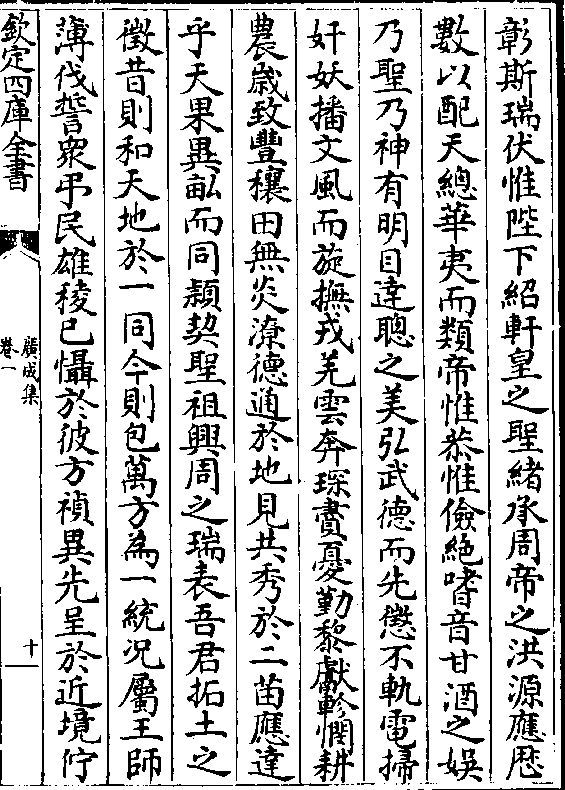 彰斯瑞伏惟陛下紹軒皇之聖緒承周帝之洪源應厯
數以配天總華夷而類帝惟恭惟儉絶嗜音甘酒之娛
乃聖乃神有明目達聰之美弘武德而先懲不軌電掃
奸妖播文風而旋撫戎羌雲奔琛賮憂勤黎獻軫憫耕
農嵗致豐穰田無炎潦德通於地見共秀於二苗應達
乎天果異畆而同穎契聖祖興周之瑞表吾君拓土之
徴昔則和天地於一同今則包萬方為一統况屬王師
薄伐誓衆弔民雄稜已懾於彼方禎異先呈於近境佇
欽定四庫全書
廣成集
卷一
十